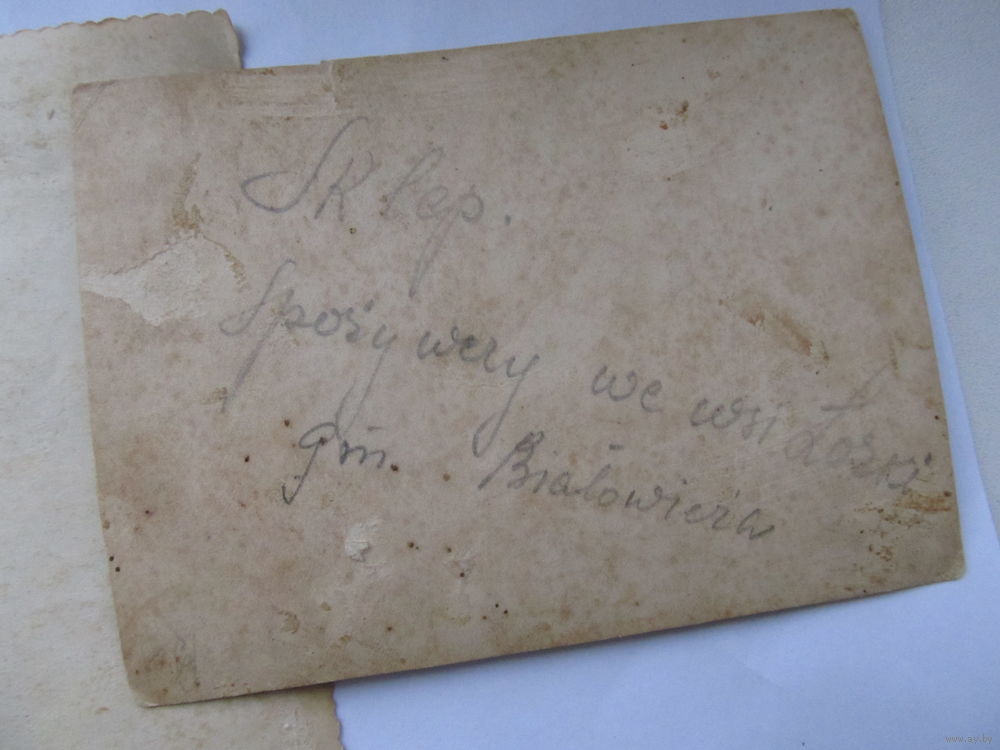 Sklep.
Spożywczy we wsi
gm. Białowieża
www.ay.by